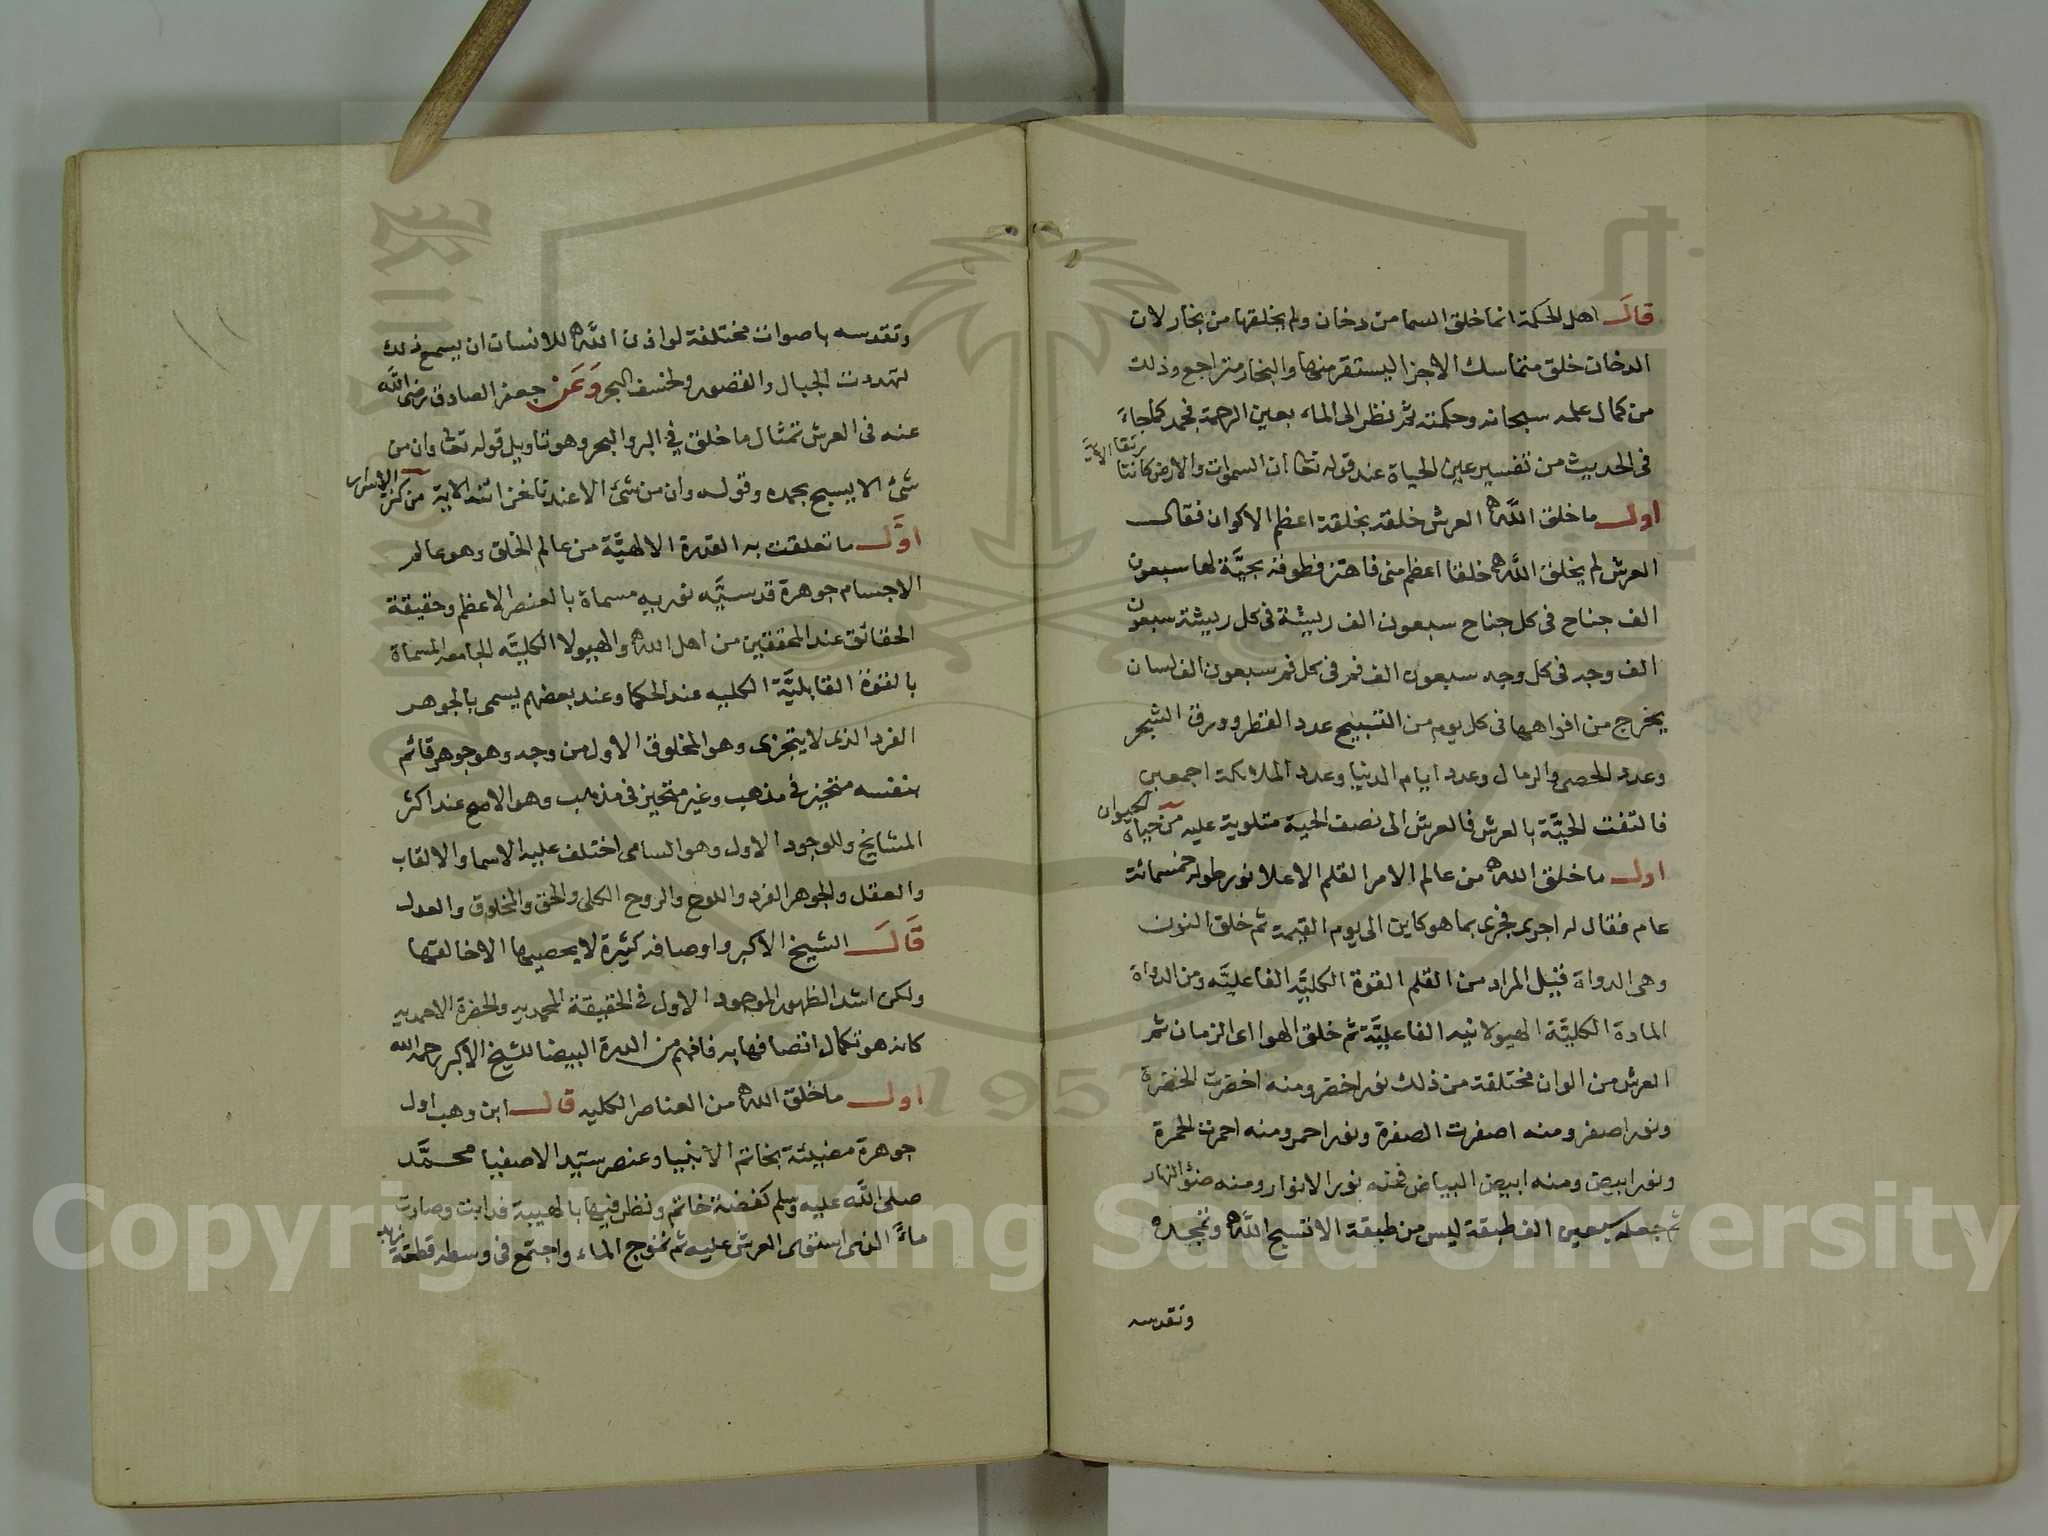 قال اهل الحكمة انما خلق السما من دخان ولم يخلقها من بخار لان
الدخان خلق متماسك الاجزا ليستقر منها والبخار متراجع وذلك
من كمال علمه سبحانه وحكمته ثم نظر الى الماء بعين الرحمة فجمد كما جاء
فى الحديث من تفسير عين الحياة عند قوله تعا ان السموات والارض كانتا رتقا الاية
اول ما خلق الله العرش خلقه بخلقة اعظم الاكوان فقال
العرش لم يخلق الله خلقا اعظم منى فاهتز فطوقه بحيَّة لها سبعون
الف جناح فى كل جناح سبعون الف ريشة فى كل ريشة سبعون
الف وجه فى كل وجه سبعون الف فم فى كل فم سبعون الف لسان
يخرج من افواهها فى كل يوم من التسبيح عدد القطر وورق الشجر
وعدد الحصى والرمال وعدد ايام الدنيا وعدد الملائكة اجمعين
فالتفت الحيَّة بالعرش فالعرش الى نصف الحية متلوية عليه من حياة الحيوان
اول ما خلق الله من عالم الامر القلم الاعلا نور طوله خمسمائة
عام فقال له اجرى فجرى بما هو كاين الى يوم القيمة ثم خلق النون
وهى الدواة قيل المراد من القلم القوة الكليَّه الفاعليَّه ومن الدواة
المادة الكليَّة الهيولانيه الفاعليَّة ثم خلق الهوا اى الزمان ثم
العرش من الوان مختلفة من ذلك نور اخضر ومنه اخضرت الخضرة
ونور اصفر ومنه اصفرت الصفرة ونور احمر ومنه احمرت الحمرة
ونور ابيض ومنه ابيض البياض فمنه نور الانوار ومنه ضئ النهار
ثم جعله سبعين الف طبقة ليس من طبقة الا تسبح الله وتمجده
وتقدسه
وتقدسه باصوات مختلفة لو اذن الله للانسان ان يسمع ذلك
لتهدمت الجبال والقصور ولخسف البحر وَعَن جعفر الصادق رضى الله
عنه فى العرش تمثال ما خلق فى البر والبحر وهو تاويل قوله تعا وان من
شئ الا يسبح بحمده وقوله وان من شئ الا عندنا خزائنه الاية من كنز الاسرار
اوَّل ما تعلقت به القدرة الالهيَّة من عالم الخلق وهو عالم
الاجسام جوهرة قدسيَّه نوريه مسماة بالعنصر الاعظم وحقيقة
الحقائق عند المحققين من اهل الله والهيولا الكليَّه الجامعه المسماة
بالقوة القابليَّة الكليه عند الحكما وعند بعضهم يسمى بالجوهر
الفرد الذى لا يتجزى وهو المخلوق الاول من وجه وهو جوهر قائم
بنفسه متحيز فى مذهب وغير متحيز فى مذهب وهو الاصح عند اكثر
المشايخ وللوجود الاول وهو السامى اختلف عليه الاسما والالقاب
والعقل والجوهر الفرد واللوح والروح الكلى والحق والمخلوق والعدل
قَالَ الشيخ الاكبر واوصافه كثيرة لا يحصيها الا خالقها
ولكن اشد الظهور الموجود الاول فى الحقيقة المحمديه والحضرة الاحمديه
كانه هو تكمال اتصافها به فافهم من الدرة البيضا للشيخ الاكبر رحمه الله
اول ما خلق الله من العناصر الكليه قال ابن وهب اول
جوهرة مضيئة بخاتم الانبيا وعنصر سيد الاصفيا محمَّد
صلى الله عليه وسلم كفضة خاتم ونظر فيها بالهيبة فذابت وصارت
ماءً الذى استوى العرش عليه ثم تموج الماء واجتمع فى وسطه قطعة
Copyright © King Saud University
1957